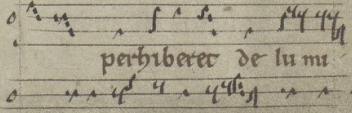 perhiberet de lumi